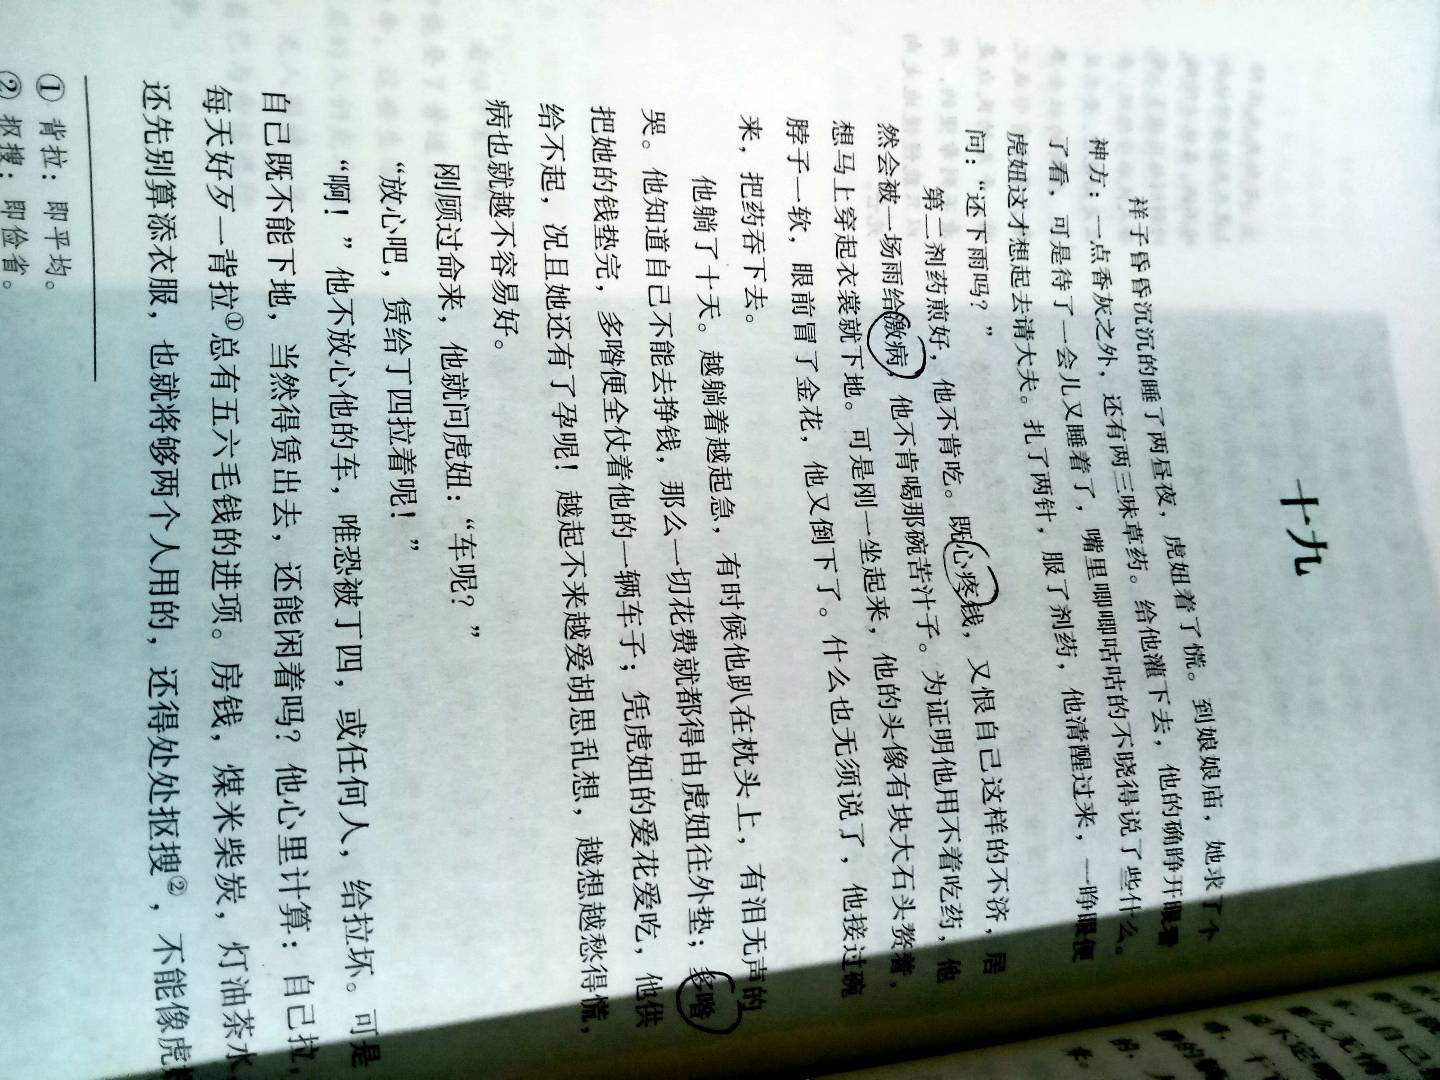 十九
祥子昏昏沉沉的睡了两昼夜，虎妞着了慌。到娘娘庙，她求了个
神方：一点香灰之外，还有两三味草药。给他灌下去，他的确睁开眼看
了看，可是待了一会儿又睡着了，嘴里唧唧咕咕的不晓得说了些什么。
虎妞这才想起去请大夫。扎了两针，服了剂药，他清醒过来，一睁眼便
问：“还下雨吗？”
第二剂药煎好，他不肯吃。既心疼钱，又恨自己这样的不济，居
然会被一场雨给激病，他不肯喝那碗苦汁子。为证明他用不着吃药，他
想马上穿起衣裳就下地。可是刚一坐起来，他的头像有块大石头赘着，
脖子一软，眼前冒了金花，他又倒下了。什么也无须说了，他接过碗
来，把药吞下去。
他躺了十天。越躺着越起急，有时候他趴在枕头上，有泪无声的
哭。他知道自己不能去挣钱，那么一切花费就都得由虎妞往外垫；多喒
把她的钱垫完，多喒便全仗着他的一辆车子；凭虎妞的爱花爱吃，他供
给不起，况且她还有了孕呢！越起不来越爱胡思乱想，越想越愁得慌，
病也就越不容易好。
刚顾过命来，他就问虎妞：“车呢？”
“放心吧，赁给丁四拉着呢！”
“啊！”他不放心他的车，唯恐被丁四，或任何人，给拉坏。可是
自己既不能下地，当然得赁出去，还能闲着吗？他心里计算：自己拉，
每天好歹一背拉①总有五六毛钱的进项。房钱，煤米柴炭，灯油茶水，
还先别算添衣服，也就将够两个人用的，还得处处抠搜②，不能像虎妞
① 背拉：即平均。
② 抠搜：即俭省。